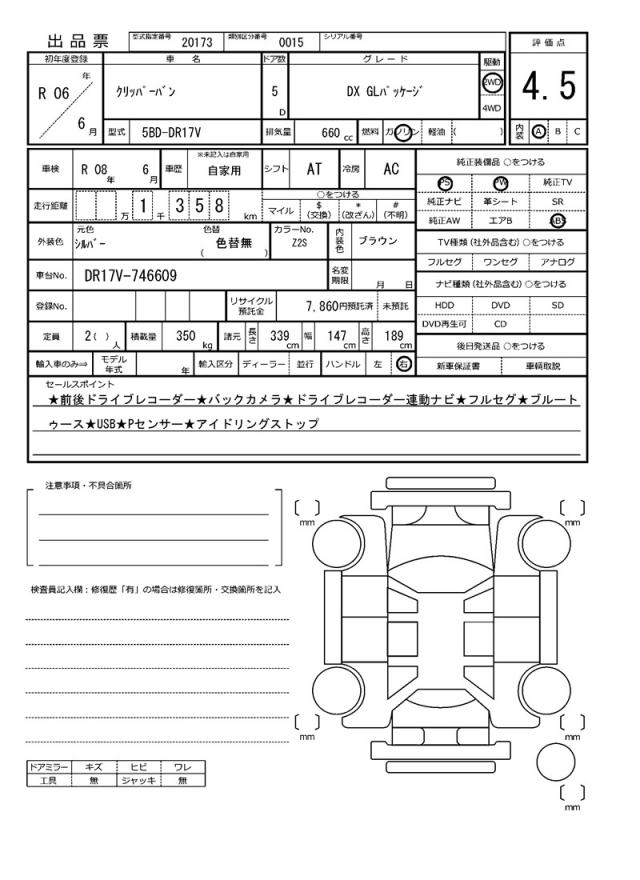 出品票 型式指定番号 20173 類別区分番号 0015 シリアル番号
初年度登録 車名 ドア数 グレード 駆動 評価点
R 06 年 6 月 クリッパーバン 5 D DX GLパッケージ 2WD 4WD 4.5
型式 5BD-DR17V 排気量 660 cc 燃料 ガソリン 軽油 ( ) 内装 A B C
車検 R 08 年 6 月 車歴 ※未記入は自家用 自家用 シフト AT 冷房 AC 純正装備品 ○をつける
PS PW 純正TV
走行距離 万 1 千 3 5 8 km ○をつける マイル $ (交換) * (改ざん) # (不明) 純正ナビ 革シート SR
純正AW エアB ABS
外装色 元色 シルバー 色替 色替無 ( ) カラーNo. Z2S 内装色 ブラウン TV種類 (社外品含む) ○をつける
フルセグ ワンセグ アナログ
車台No. DR17V-746609 名変期限 月 日 ナビ種類 (社外品含む) ○をつける
登録No. リサイクル預託金 7,860円預託済 未預託 HDD DVD SD
DVD再生可 CD
定員 2( ) 人 積載量 350 kg 諸元 長さ 339 cm 幅 147 cm 高さ 189 cm 後日発送品 ○をつける
輸入車のみ⇒ モデル年式 年 輸入区分 ディーラー 並行 ハンドル 左 右 新車保証書 車輌取説
セールスポイント
★前後ドライブレコーダー★バックカメラ★ドライブレコーダー連動ナビ★フルセグ★ブルート
ゥース★USB★Pセンサー★アイドリングストップ
注意事項・不具合箇所
mm mm
検査員記入欄：修復歴「有」の場合は修復箇所・交換箇所を記入
mm mm
ドアミラー キズ ヒビ ワレ
工具 無 ジャッキ 無
mm